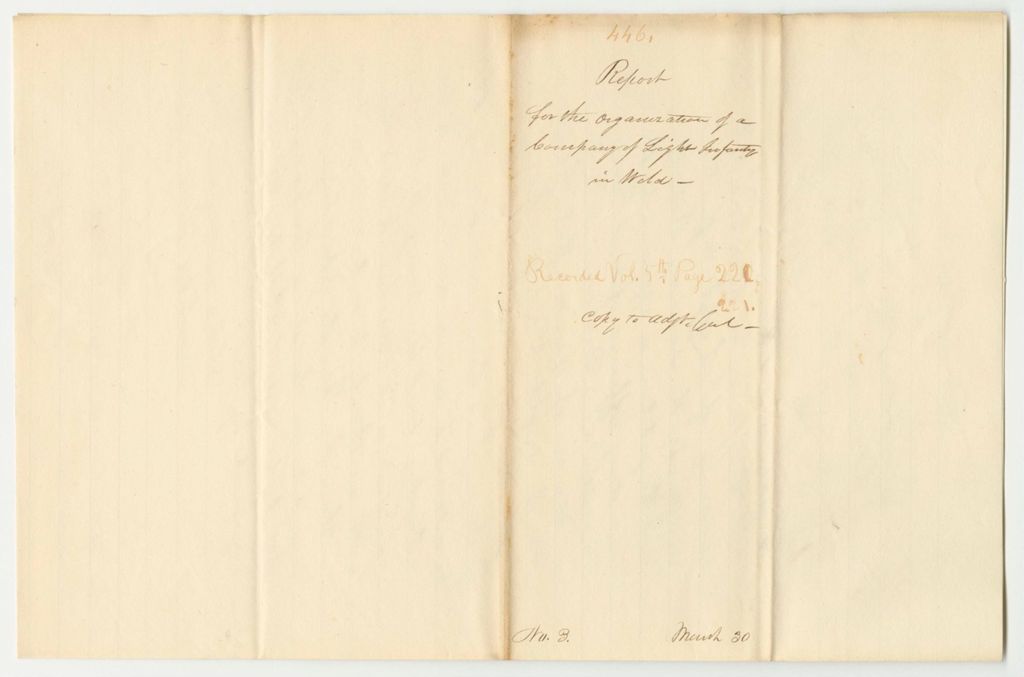 446.
Report
for the organization of a
Company of Light Infantry
in Weld -
Recorded Vol. 5th Page 220,
221.
Copy to Adjt. Genl -
No. 3.
March 30